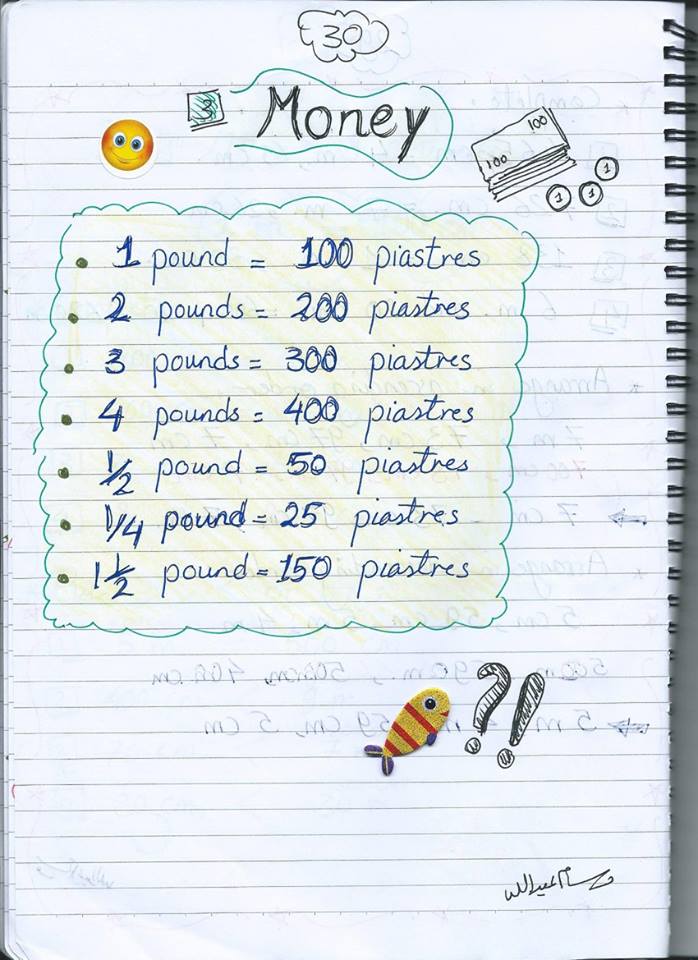 30
3 Money
100
100
1 1 1
1 pound = 100 piastres
2 pounds = 200 piastres
3 pounds = 300 piastres
4 pounds = 400 piastres
1/2 pound = 50 piastres
1/4 pound = 25 piastres
1 1/2 pound = 150 piastres
?!